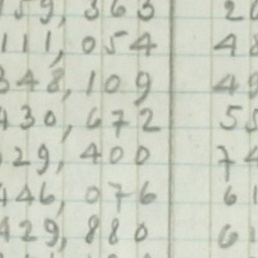 159, 363 20
111, 054 48
348, 109 49
430, 672 55
129, 400 74
446, 076 61
429, 880 61